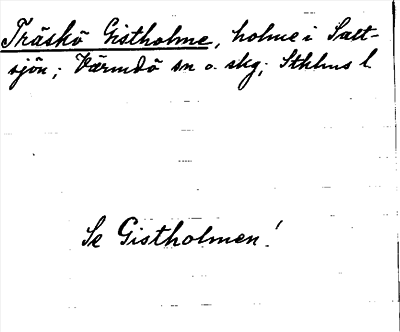 Träskö Gistholme, holme i Salt-
sjön; Värmdö sn o. skg; Sthlms l.
Se Gistholmen!